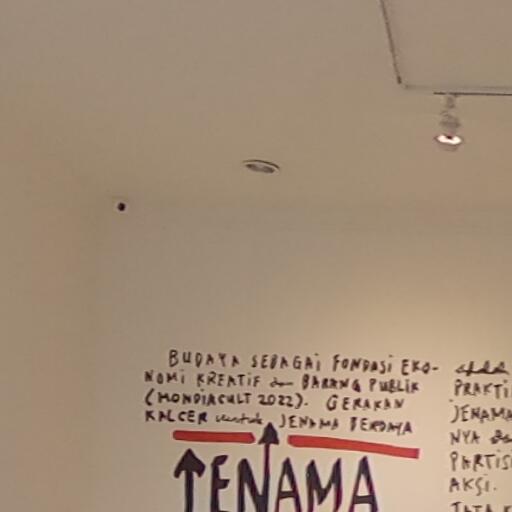 BUDAYA SEBAGAI FONDASI EKO-
NOMI KREATIF dan BARANG PUBLIK
(MONDIACULT 2022). GERAKAN
KALCER untuk JENAMA BERDAYA
JENAMA
PRAKTI
JENAMA
NYA dan
PARTISI
AKSI.